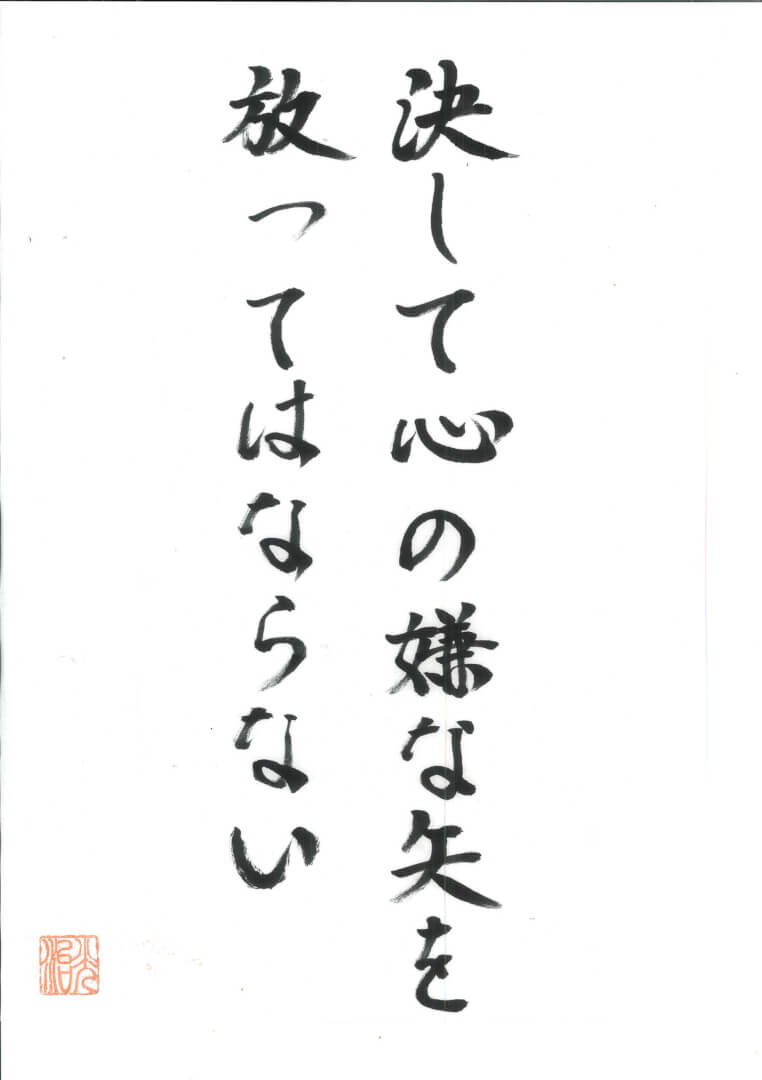 決して心の嫌な矢を
放ってはならない